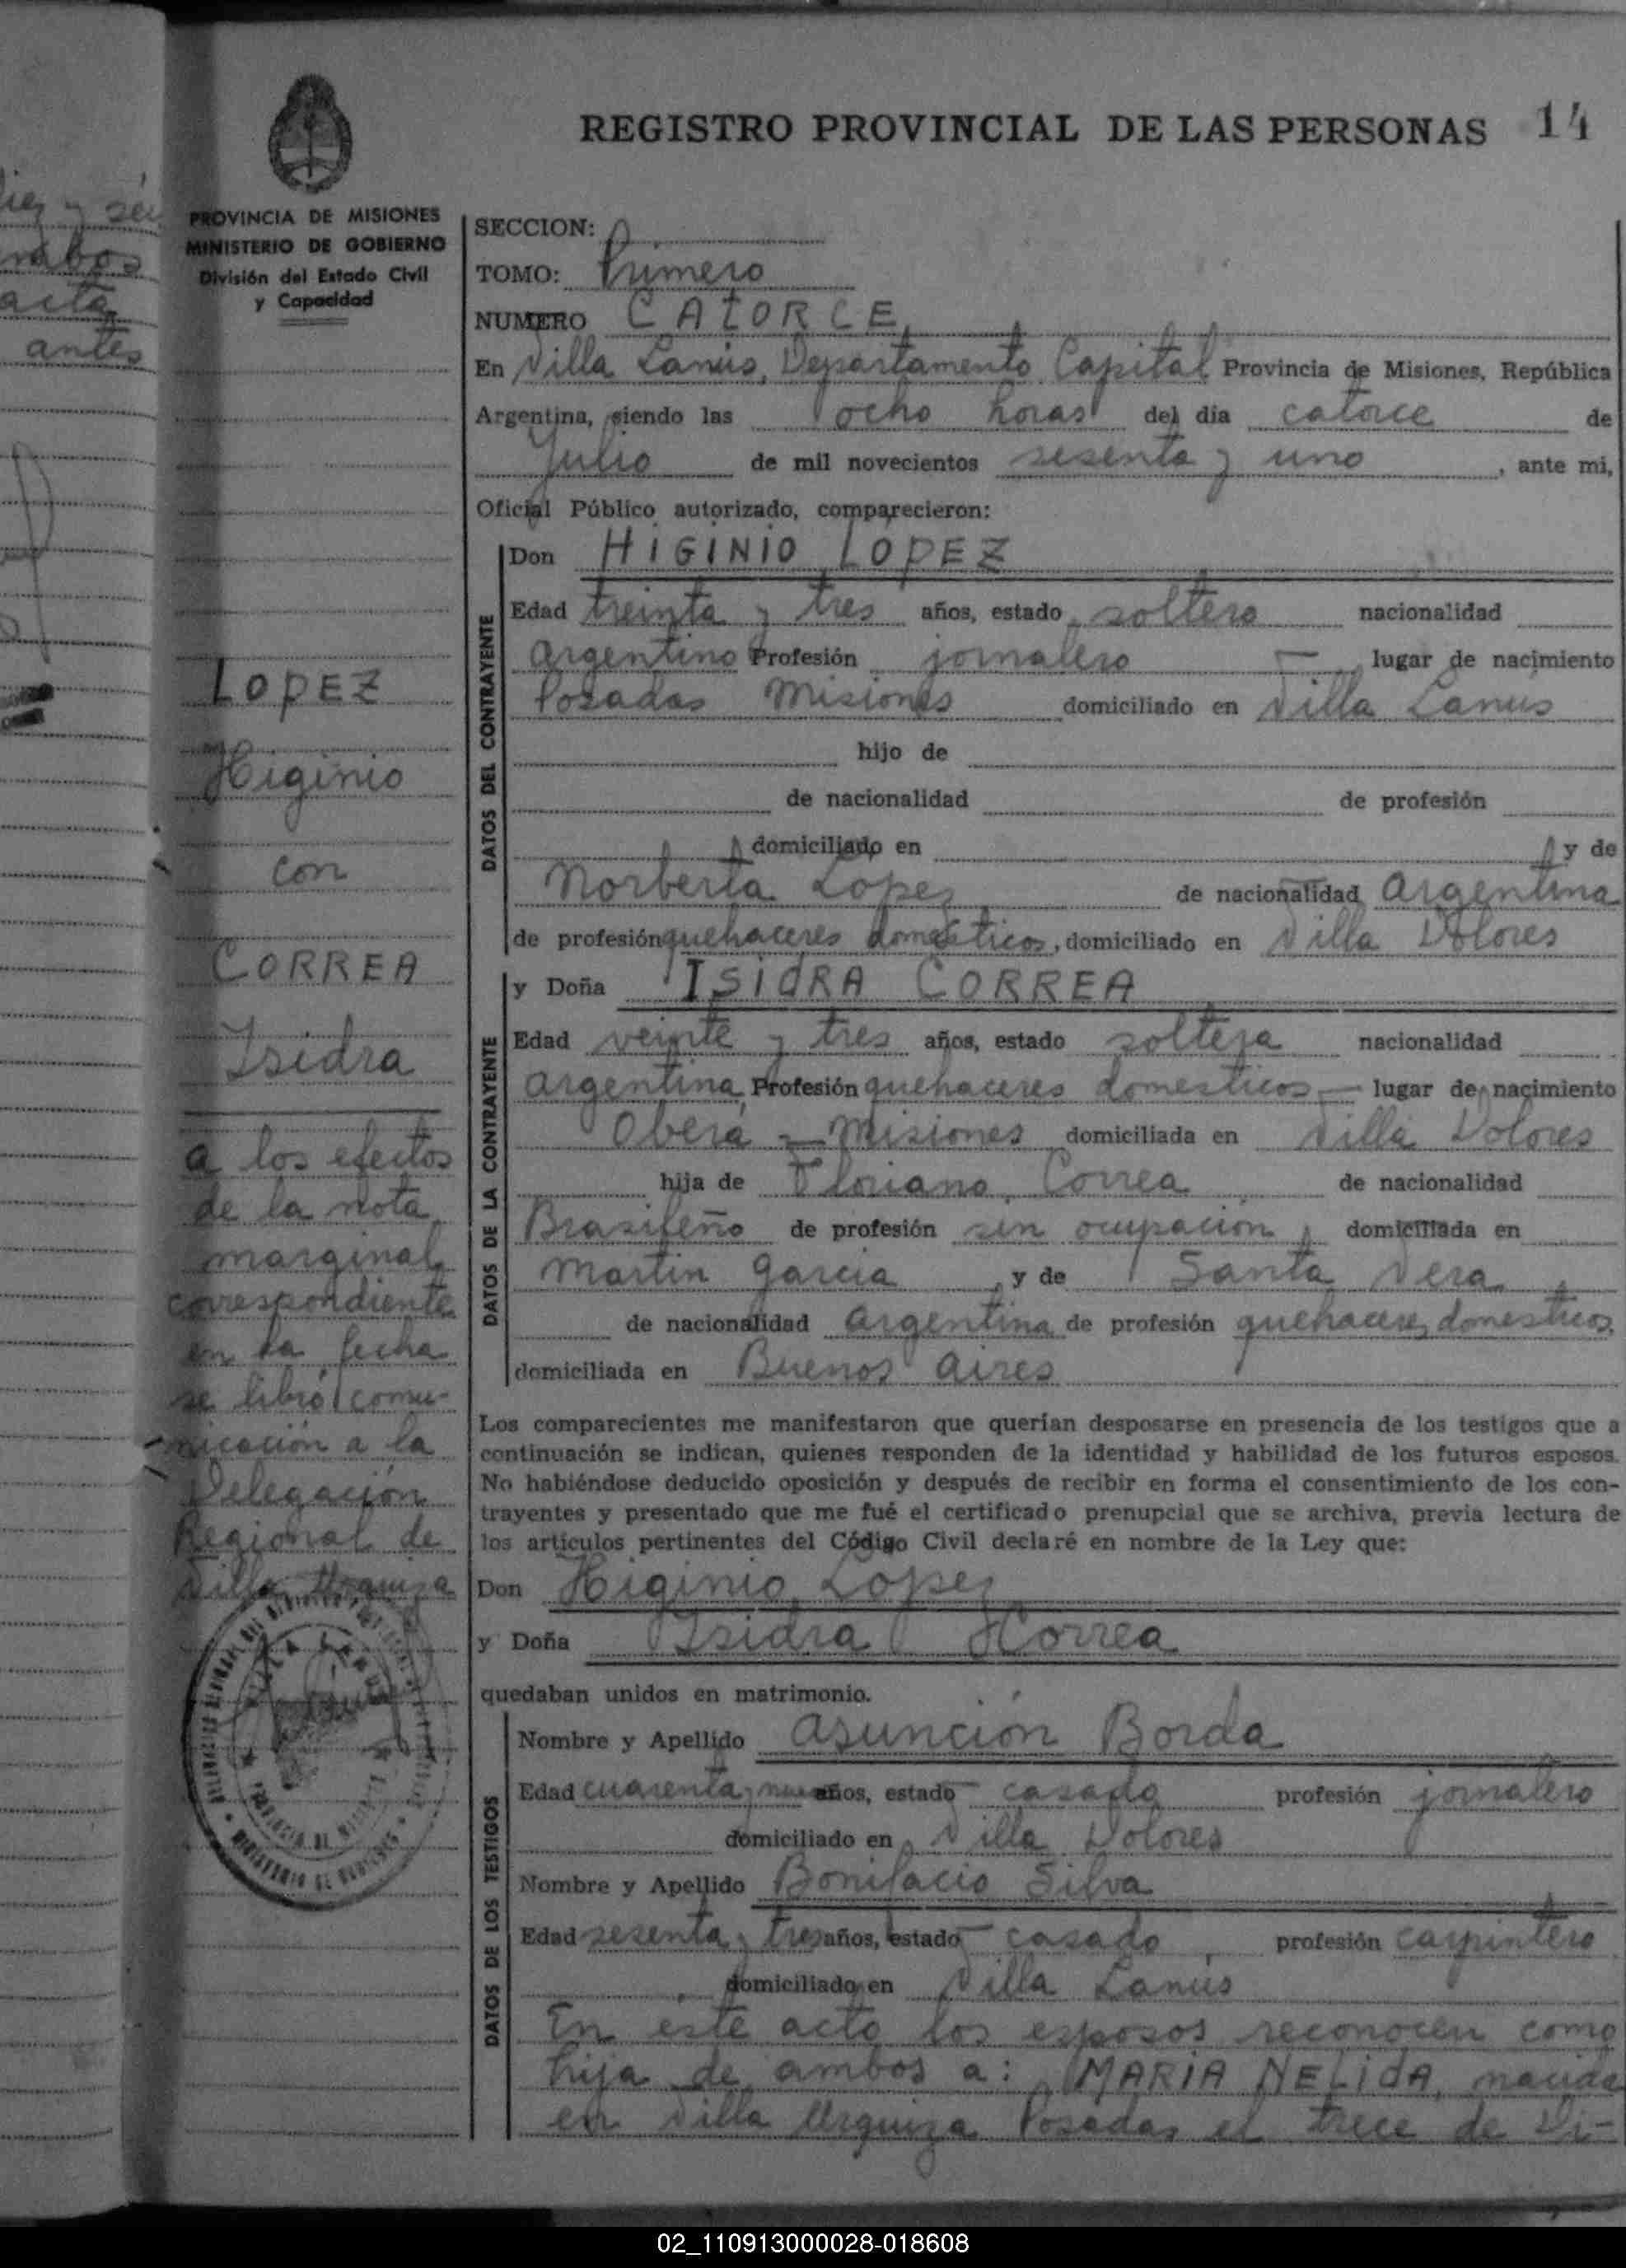 REGISTRO PROVINCIAL DE LAS PERSONAS 14
PROVINCIA DE MISIONES
MINISTERIO DE GOBIERNO
División del Estado Civil
y Capacidad
SECCION:
TOMO: Primero
NUMERO CATORCE
En Villa Lanús, Departamento Capital Provincia de Misiones, República
Argentina, siendo las ocho horas del día catorce de
Julio de mil novecientos sesenta y uno, ante mi,
Oficial Público autorizado, comparecieron:
DATOS DEL CONTRAYENTE
Don HIGINIO LOPEZ
Edad treinta y tres años, estado soltero nacionalidad
argentino Profesión jornalero lugar de nacimiento
Posadas Misiones domiciliado en Villa Lanus
hijo de
de nacionalidad de profesión
domiciliado en y de
Norberta Lopez de nacionalidad argentina
de profesión quehaceres domésticos, domiciliado en Villa Dolores
DATOS DE LA CONTRAYENTE
y Doña ISIDRA CORREA
Edad veinte y tres años, estado soltera nacionalidad
argentina Profesión quehaceres domesticos — lugar de nacimiento
Oberá - Misiones domiciliada en Villa Dolores
hija de Floriano Correa de nacionalidad
Brasileño de profesión sin ocupación, domiciliada en
Martin Garcia, y de Santa Vera
de nacionalidad argentina de profesión quehaceres domesticos,
domiciliada en Buenos Aires
Los comparecientes me manifestaron que querían desposarse en presencia de los testigos que a
continuación se indican, quienes responden de la identidad y habilidad de los futuros esposos.
No habiéndose deducido oposición y después de recibir en forma el consentimiento de los con-
trayentes y presentado que me fué el certificado prenupcial que se archiva, previa lectura de
los artículos pertinentes del Código Civil declaré en nombre de la Ley que:
Don Higinio Lopez
y Doña Isidra Correa
quedaban unidos en matrimonio.
DATOS DE LOS TESTIGOS
Nombre y Apellido Asunción Borda
Edad cuarenta y años, estado casado profesión jornalero
domiciliado en Villa Dolores
Nombre y Apellido Bonifacio Silva
Edad sesenta y tres años, estado casado, profesión carpintero
domiciliado en Villa Lanús
En este acto los esposos reconocen como
hija de ambos a: MARIA NELIDA, nacida
en Villa Urquiza Posadas el trece de Di-
LOPEZ
Higinio
con
CORREA
Isidra
a los efectos
de la nota
marginal
correspondiente
en la fecha
se libró comu-
nicación a la
Delegación
Regional de
Villa Urquiza
VILLA LANUS
diez y
ambos
acta
antes
02_110913000028-018608